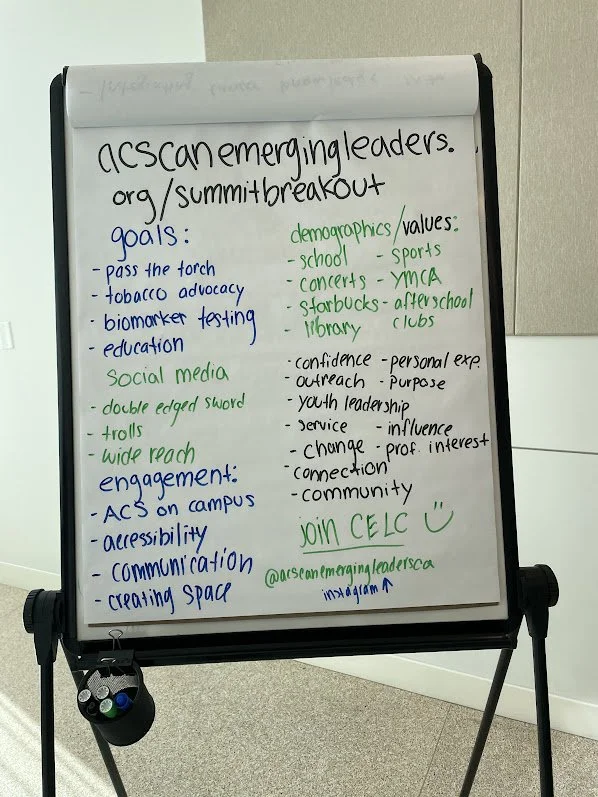 - Integrating
acscanemergingleaders.
org/summitbreakout
goals:
- pass the torch
- tobacco advocacy
- biomarker testing
- education
social media
- double edged sword
- trolls
- wide reach
engagement:
- ACS on campus
- accessibility
- communication
- creating space
demographics/values:
- school - sports
- concerts - YMCA
- starbucks - afterschool
- library clubs
- confidence - personal exp.
- outreach - purpose
- youth leadership
- service - influence
- change - prof. interest
- connection
- community
join CELC
@acscanemergingleadersca
instagram ↑